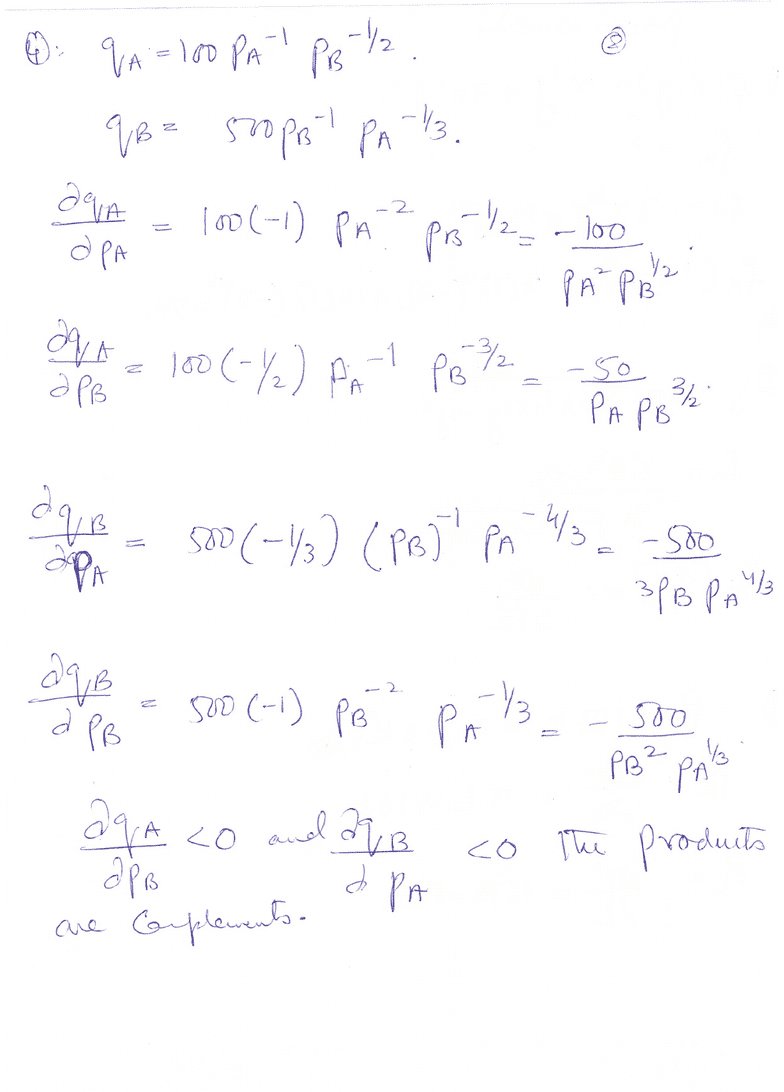 ④: qA = 100 PA^-1 PB^-1/2. ②
qB = 500 PB^-1 PA^-1/3.
∂qA/∂PA = 100(-1) PA^-2 PB^-1/2 = -100/(PA^2 PB^1/2).
∂qA/∂PB = 100(-1/2) PA^-1 PB^-3/2 = -50/(PA PB^3/2).
∂qB/∂PA = 500(-1/3) (PB)^-1 PA^-4/3 = -500/(3PB PA^4/3)
∂qB/∂PB = 500(-1) PB^-2 PA^-1/3 = -500/(PB^2 PA^1/3).
∂qA/∂PB <0 and ∂qB/∂PA <0 The products
are Complements.